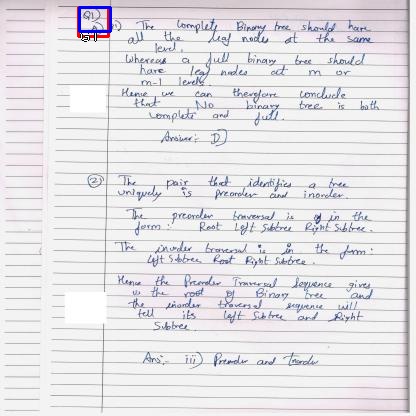 Q1)
A) (1) The Complete Binary tree should have
all the leaf nodes at the same
level.
Whereas a full binary tree should
have leaf nodes at m or
m-1 levels
Hence we can therefore conclude
that No binary tree is both
complete and full.
Answer:- D]
(2) The pair that identifies a tree
uniquely is preorder and inorder.
The preorder traversal is in the
form: Root Left Subtree Right Subtree.
The inorder traversal is in the form:
Left Subtree Root Right Subtree.
Hence the Preorder Traversal Sequence gives
us the root of Binary tree and
the inorder traversal sequence will
tell its left Subtree and Right
Subtree
Ans:- iii) Preorder and Inorder